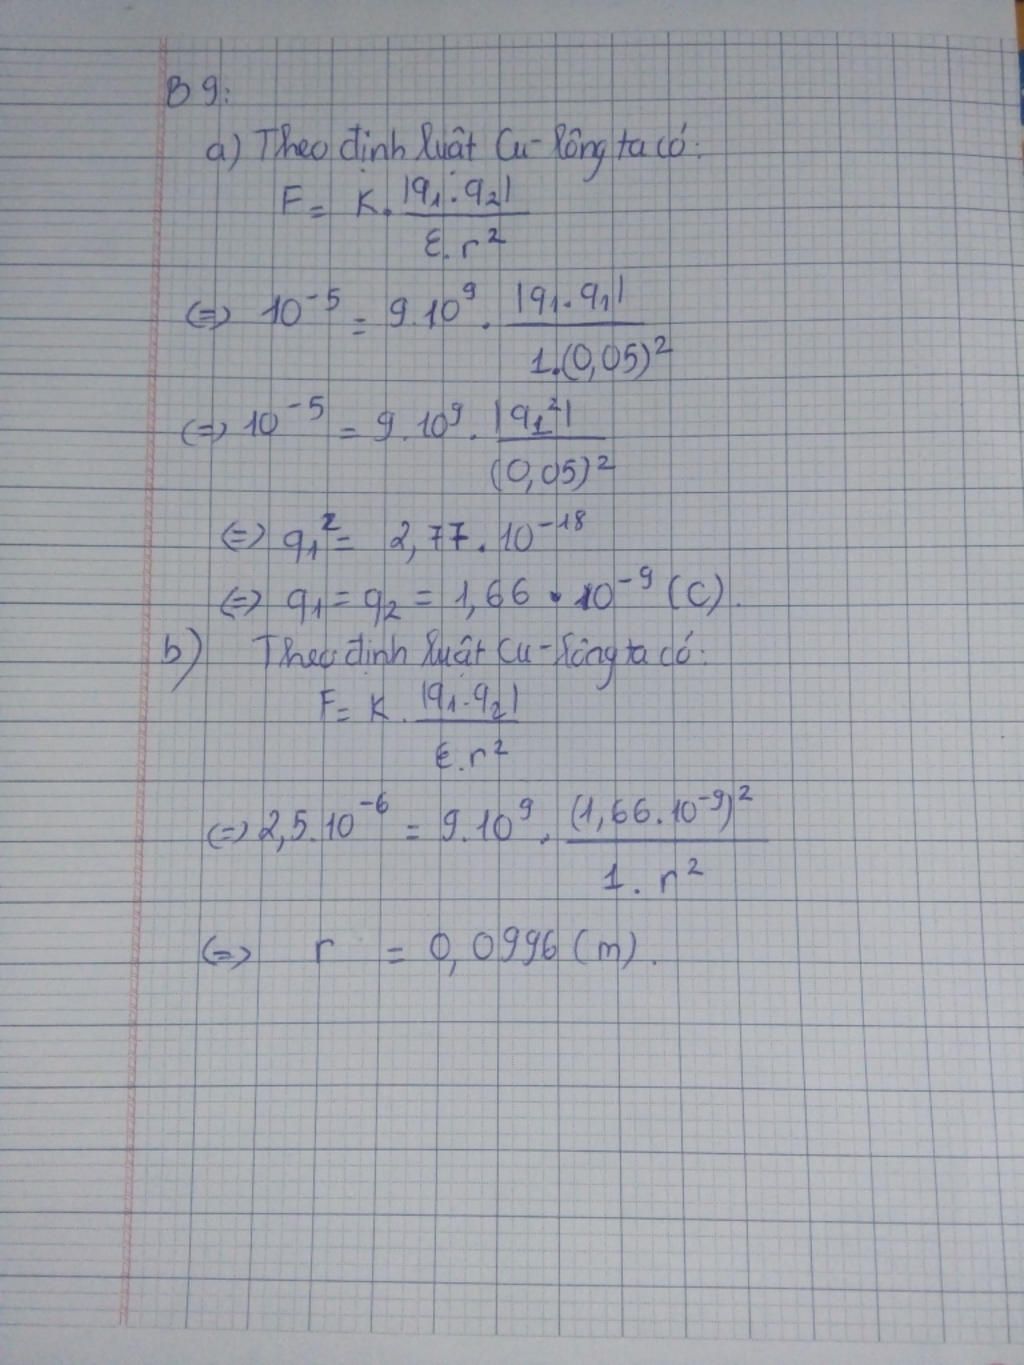 B 9:
a) Theo định luật Cu-lông ta có:
F = K. |q₁.q₂| / ε.r²
(=) 10⁻⁵ = 9.10⁹. |q₁.q₁| / 1.(0,05)²
(=) 10⁻⁵ = 9.10⁹. |q₁²| / (0,05)²
(=) q₁² = 2,77.10⁻¹⁸
(=) q₁ = q₂ = 1,66.10⁻⁹ (C).
b) Theo định luật Cu-lông ta có:
F = K. |q₁.q₂| / ε.r²
(=) 2,5.10⁻⁶ = 9.10⁹. (1,66.10⁻⁹)² / 1. r²
(=) r = 0,0996 (m).